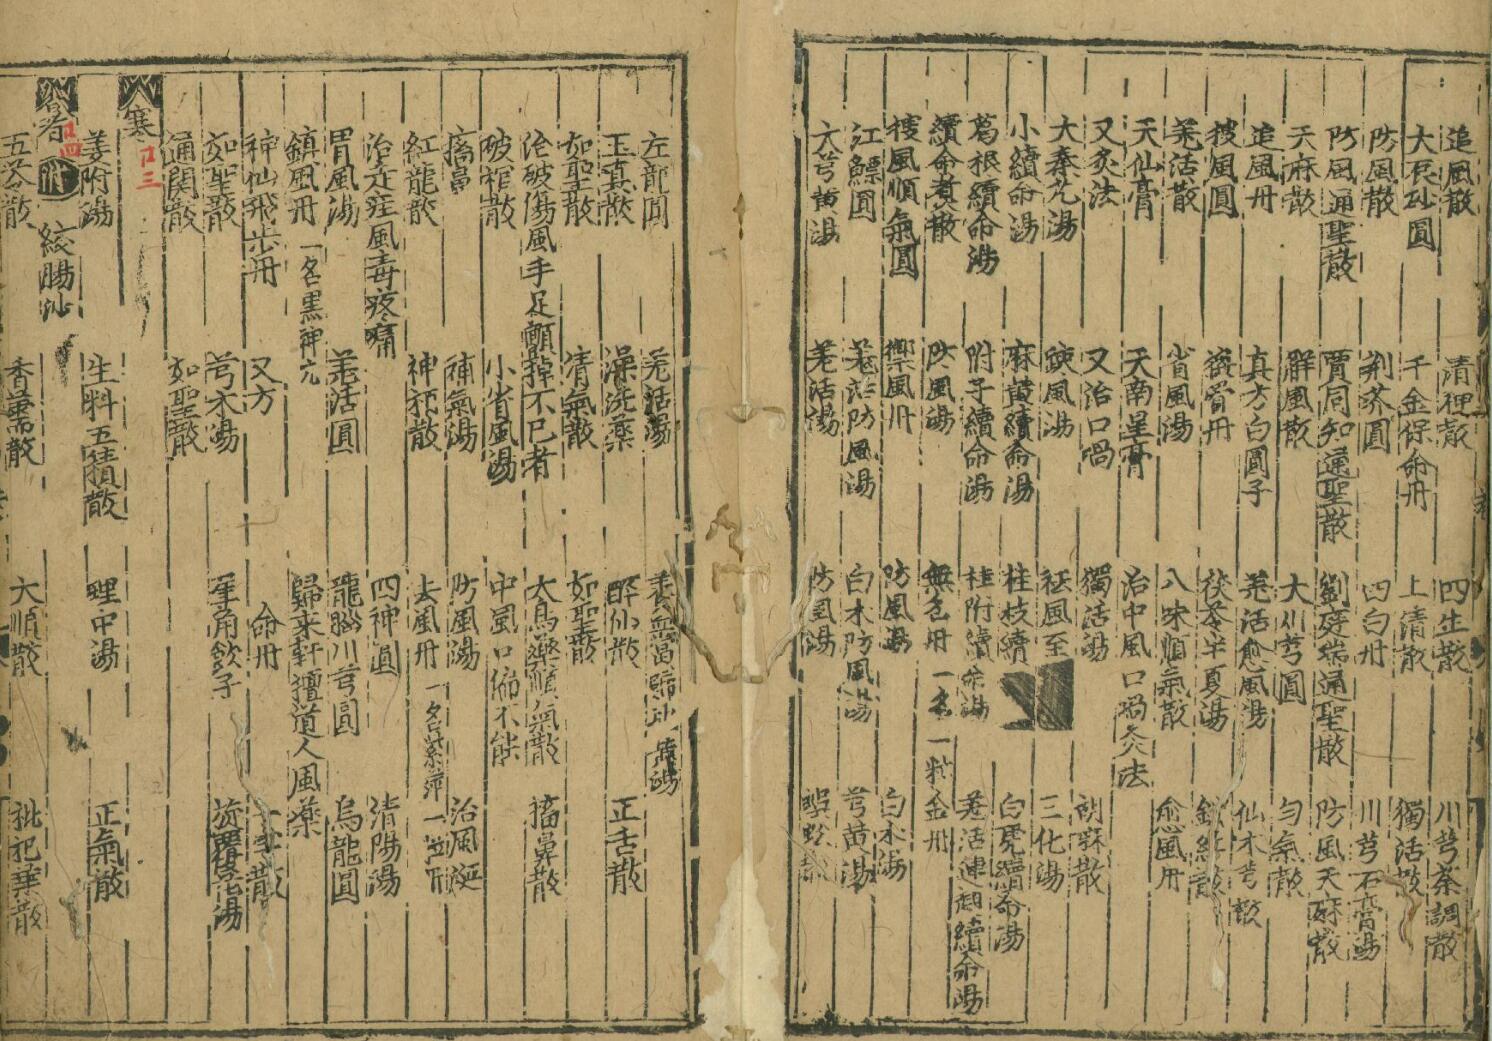 追風散 清神散 四生散 川芎茶調散
大辰砂圓 千金保命丹 上清散 獨活散
防風散 荆芥圓 四白丹 川芎石膏湯
防風通聖散 賈同知通聖散 劉庭瑞通聖散 防風天麻散
天麻散 解風散 大川芎圓 勻氣散
追風丹 真方白圓子 羌活愈風湯 仙术芎散
搜風圓 丹 茯苓半夏湯
羌活散 省風湯 八味順氣散 愈風丹
天仙膏 天南星膏 治中風口喎灸法
又灸法 又治口喎 獨活湯 胡麻散
大秦艽湯 風湯 祛風至 三化湯
小續命湯 麻黄續命湯 桂枝續 白虎續命湯
葛根續命湯 附子續命湯 桂附續命湯 羌活連翹續命湯
續命煑散 防風湯 無名丹 一名一粒金丹
搜風順氣圓 禦風丹 防風湯 白术湯
江鰾圓 羌活防風湯 白术防風湯 芎黄湯
大芎黄湯 羌活湯 防風湯
左龍圓 羌活湯 養血當歸 湯
玉真散 澡洗藥 醉仙散 正舌散
如聖散 清氣散 如聖散
治破傷風手足顫掉不已者 大烏藥順氣散 搐鼻散
破棺散 小省風湯 中風口偏不能
搐 補氣湯 防風湯 治風涎
紅龍散 神 散 去風丹 一名紫萍一
治走疰風毒疼痛 四神圓 清陽湯
胃風湯 羌活圓 龍腦川芎圓 烏龍圓
鎮風丹 一名黑神元 歸來軒獲道人風藥
神仙飛步丹 又方 命丹 散
如聖散 芎术湯 犀角飲子 旋覆花湯
通關散 如聖散
寒 口三
姜附湯 生料五積散 理中湯 正氣散
暑 口四 附 絞腸沙
五苓散 香薷散 大順散 枇杷葉散